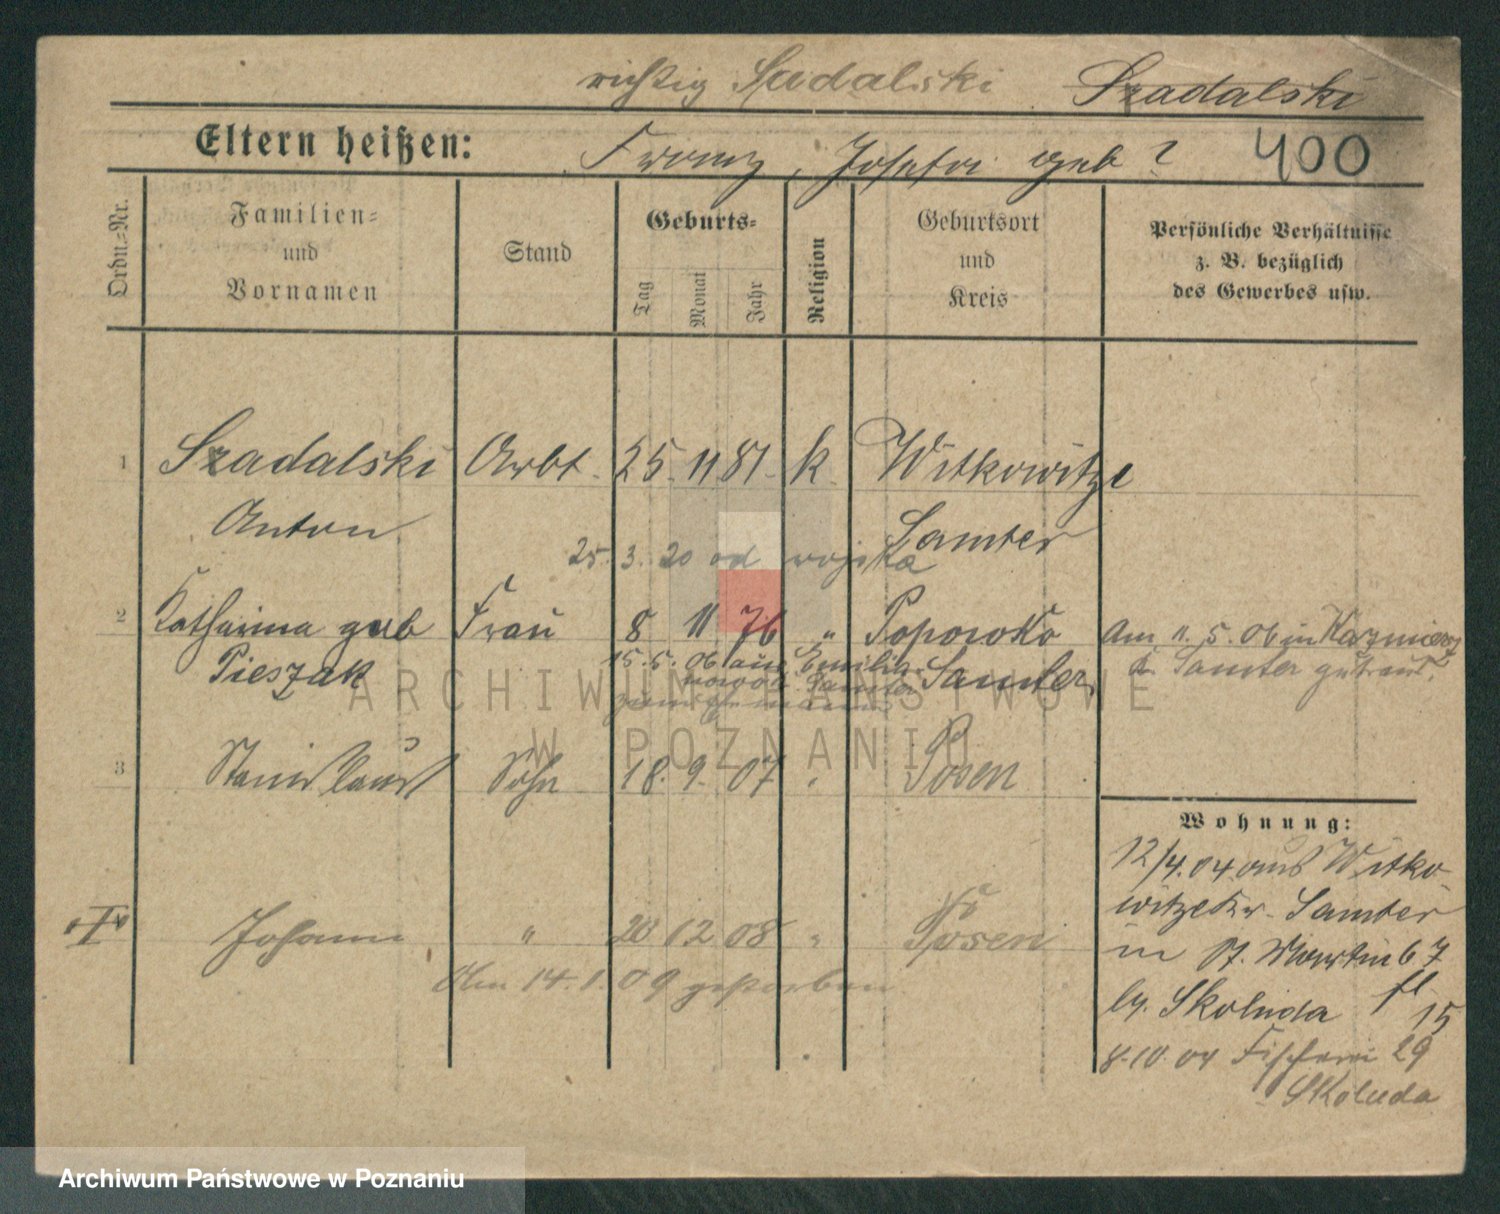 richtig Sadalski Szadalski
Eltern heißen: Franz, Josefa geb ? 400
Ordn.-Nr.
Familien-
und
Vornamen
Stand
Geburts-
Tag Monat Jahr
Religion
Geburtsort
und
Kreis
Persönliche Verhältnisse
z. B. bezüglich
des Gewerbes usw.
1 Szadalski Arbt. 25. 11. 81. k. Witkowitze
Anton Samter
25. 3. 20 od wojska
2 Katharina geb Frau 8 11 76 " Popowko Am 11. 5. 06 in Kazmierz
Pieszak 15. 5. 06 aus Samter, K. Samter getraut.
3 Stanislaus Sohn 18. 9. 07 " Posen
Johann " 20 12 08 " Posen
Am 14. 1. 09 gestorben
Wohnung:
12/4. 04 aus Witko-
witze Kr. Samter
in St. Martin 67
by. Skoluda 15
8. 10. 04 Fischerei 29
Skoluda
ARCHIWUM PAŃSTWOWE
W POZNANIU
Archiwum Państwowe w Poznaniu